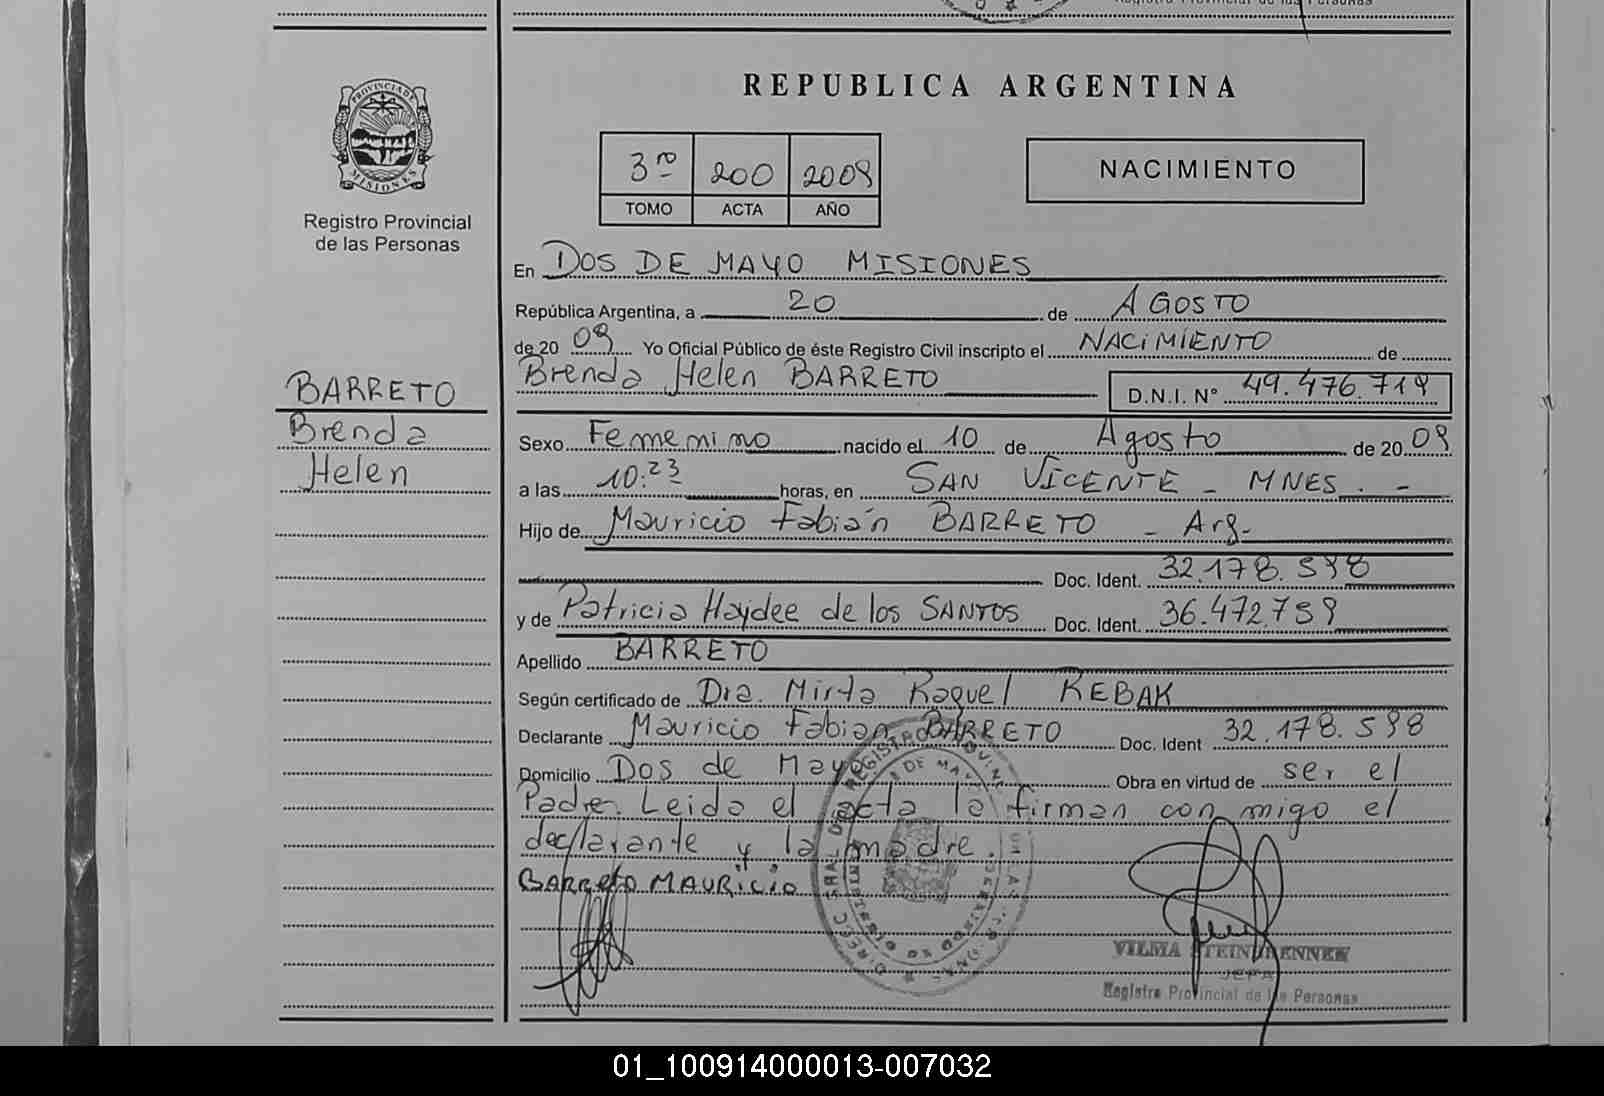 Registro Provincial de las Personas
REPUBLICA ARGENTINA
PROVINCIA DE
MISIONES
Registro Provincial
de las Personas
3ro 200 2009
TOMO ACTA AÑO
NACIMIENTO
En DOS DE MAYO MISIONES
República Argentina, a 20 de AGOSTO
de 20 09 Yo Oficial Público de éste Registro Civil inscripto el NACIMIENTO de
Brenda Helen BARRETO D.N.I. Nº 49.476.719
BARRETO
Brenda
Helen
Sexo Femenino nacido el 10 de Agosto de 20 09
a las 10:23 horas, en SAN VICENTE - MNES. -
Hijo de Mauricio Fabián BARRETO - Arg-
Doc. Ident. 32.178.598
y de Patricia Haydee de los SANTOS Doc. Ident. 36.472.759
Apellido BARRETO
Según certificado de Dra. Mirta Raquel REBAK
Declarante Mauricio Fabian BARRETO Doc. Ident 32.178.598
Domicilio Dos de Mayo Obra en virtud de ser el
Padre. Leida el acta la firman con migo el
declarante y la madre.
BARRETO MAURICIO
VILMA STEINBRENNER
JEFA
Registro Provincial de las Personas
01_100914000013-007032